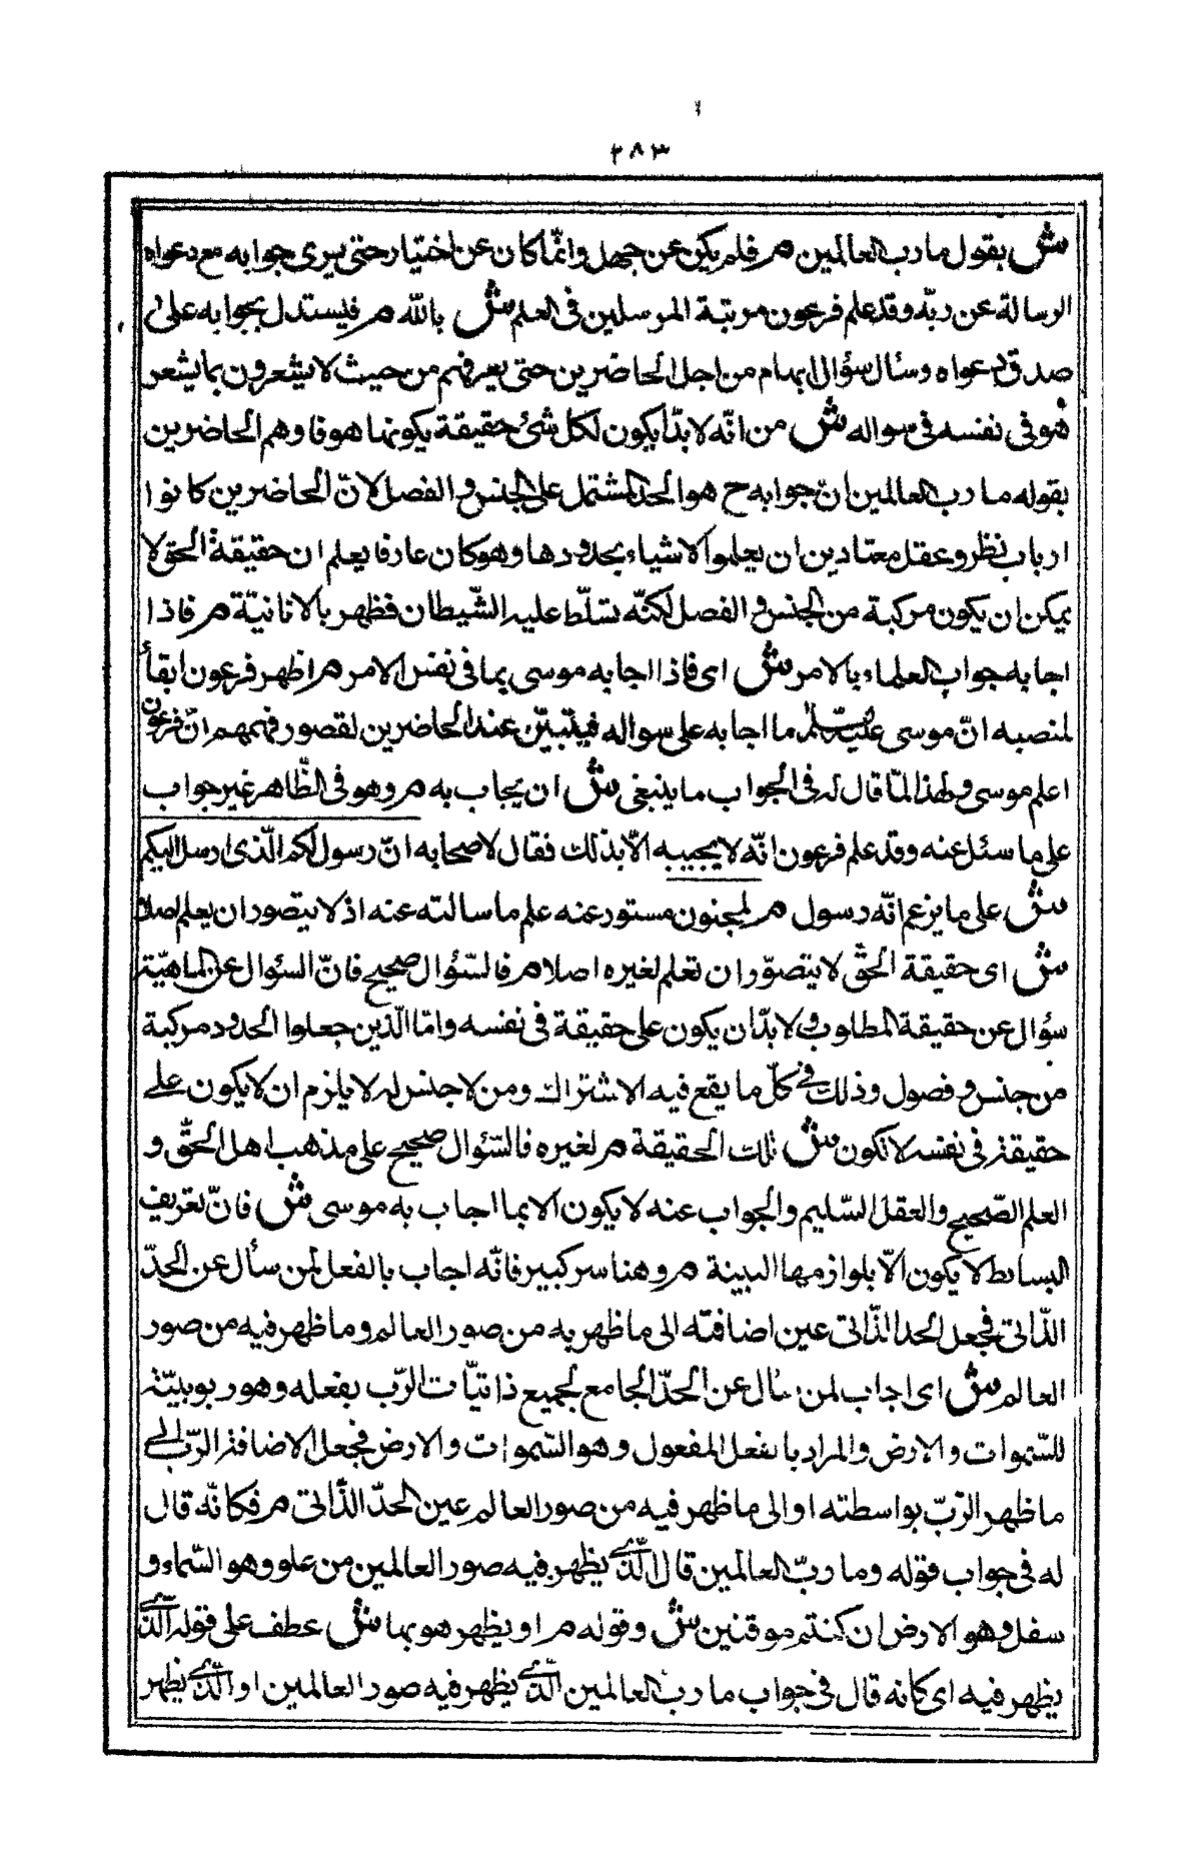 ٢٨٣
ش بقول ما رب العالمين م فلم يكن عن جهل وانّما كان عن اختيار حتى يرى جوابه مع دعواه
الرسالة عن ربّه وقد علم فرعون مرتبة المرسلين فى العلم ش بالله م فيستدل بجوابه على
صدق دعواه وسئال سؤال ايهام من اجل الحاضرين حتى يعرفهم من حيث لا يشعرون بما يشعر
هو فى نفسه فى سواله ش من انّه لا بدّ ان يكون لكل شئ حقيقة يكون بها هو فاوهم الحاضرين
بقوله ما رب العالمين انّ جوابه ح هو الحد المشتمل على الجنس والفصل لانّ الحاضرين كانوا
ارباب نظر وعقل معتادين ان يعلموا الاشياء بحدودها وهو كان عارفا يعلم ان حقيقة الحق لا
يمكن ان يكون مركبة من الجنس والفصل لكنّه تسلّط عليه الشّيطان فظهر بالانانيّة م فاذا
اجابه جواب العلماء بالامر ش اى فاذا اجابه موسى بما فى نفس الامر م اظهر فرعون ابقاءً
لمنصبه انّ موسى عليه السلام ما اجابه على سواله فيتبيّن عند الحاضرين لقصور فهمهم انّ فرعون
اعلم موسى ولهذا لمّا قال له فى الجواب ما ينبغى ش ان يجاب به م وهو فى الظّاهر غير جواب
على ما سئل عنه وقد علم فرعون انّه لا يجيبه الّا بذلك فقال لاصحابه انّ رسولكم الّذى ارسل اليكم
ش على ما يزعم انّه رسول م لمجنون مستور عنه علم ما سالته عنه اذ لا يتصور ان يعلم اصلا
ش اى حقيقة الحقّ لا يتصوّر ان تعلم لغيره اصلا م فالسّؤال صحيح فانّ السؤال عن الماهيّة
سؤال عن حقيقة المطلوب ولا بدّ ان يكون على حقيقة فى نفسه وامّا الّذين جعلوا الحدود مركبة
من جنس وفصول وذلك فى كلّ ما يقع فيه الاشتراك ومن لا جنس له لا يلزم ان لا يكون على
حقيقة فى نفسه لا تكون ش تلك الحقيقة م لغيره فالسّؤال صحيح على مذهب اهل الحقّ و
العلم الصّحيح والعقل السّليم والجواب عنه لا يكون الا بما اجاب به موسى ش فانّ تعريف
البسائط لا يكون الّا بلوازمها البينة م وهنا سر كبير فانّه اجاب بالفعل لمن سأل عن الحدّ
الذّاتى فجعل الحد الذّاتى عين اضافته الى ما ظهر به من صور العالم وما ظهر فيه من صور
العالم ش اى اجاب لمن سأل عن الحدّ الجامع لجميع ذاتيّات الرّب بفعله وهو ربوبيّة
للسّموات والارض والمراد بالفعل المفعول وهو السّموات والارض فجعل الاضافة الرّب الى
ما ظهر الرّبّ بواسطته او الى ما ظهر فيه من صور العالم عين الحدّ الذّاتى م فكانّه قال
له فى جواب قوله وما ربّ العالمين قال الّذى يظهر فيه صور العالمين من علو وهو السّماء و
سفل وهو الارض ان كنتم موقنين ش وقوله م او يظهر هو بها ش عطف على قوله الّذى
يظهر فيه اى كانه قال فى جواب ما رب العالمين الّذى يظهر فيه صور العالمين او الّذى يظهر